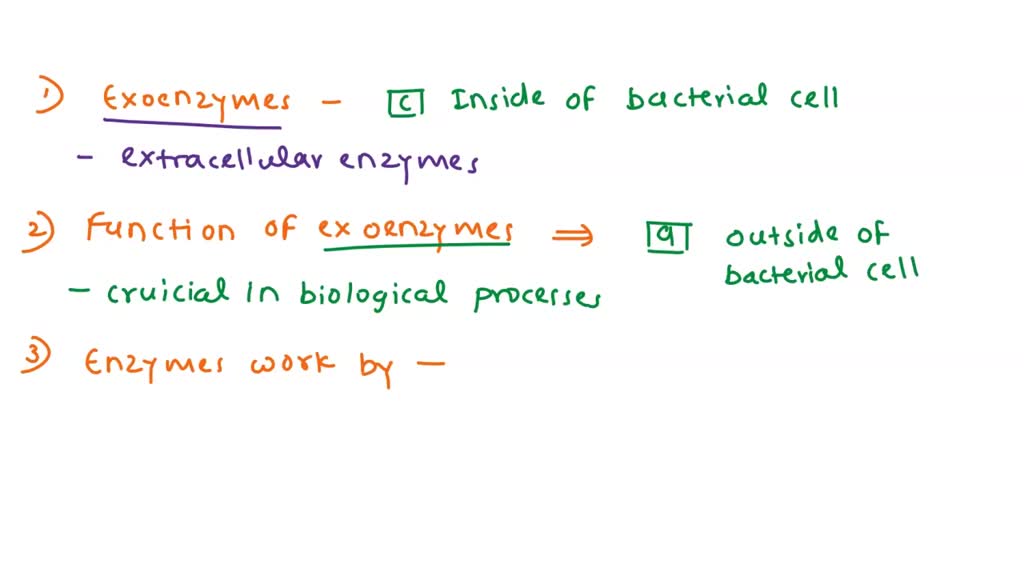 1) Exoenzymes - [C] Inside of bacterial cell
- extracellular enzymes
2) Function of exoenzymes ⇒ [a] outside of
bacterial cell
- cruicial in biological processes
3) Enzymes work by -